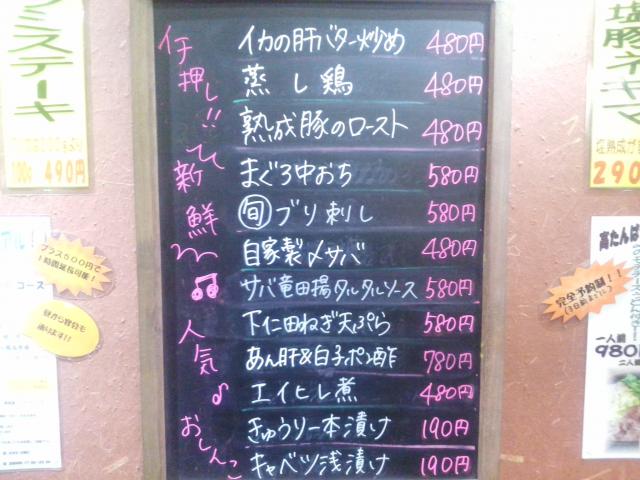 イチ押し!!
イカの肝バター炒め 480円
蒸し鶏 480円
熟成豚のロースト 480円
新鮮
まぐろ中おち 580円
旬ブリ刺し 580円
自家製〆サバ 480円
サバ竜田揚タルタルソース 580円
人気
下仁田ねぎ天ぷら 580円
あん肝&白子ポン酢 780円
エイヒレ煮 480円
おしんこ
きゅうり一本漬け 190円
キャベツ浅漬け 190円
ステーキ
100g 490円
プラス500円で
1時間延長可能!
コース
塩豚ネギマ
290
高たんぱ
完全予約制!!
一人前
980円
二人前